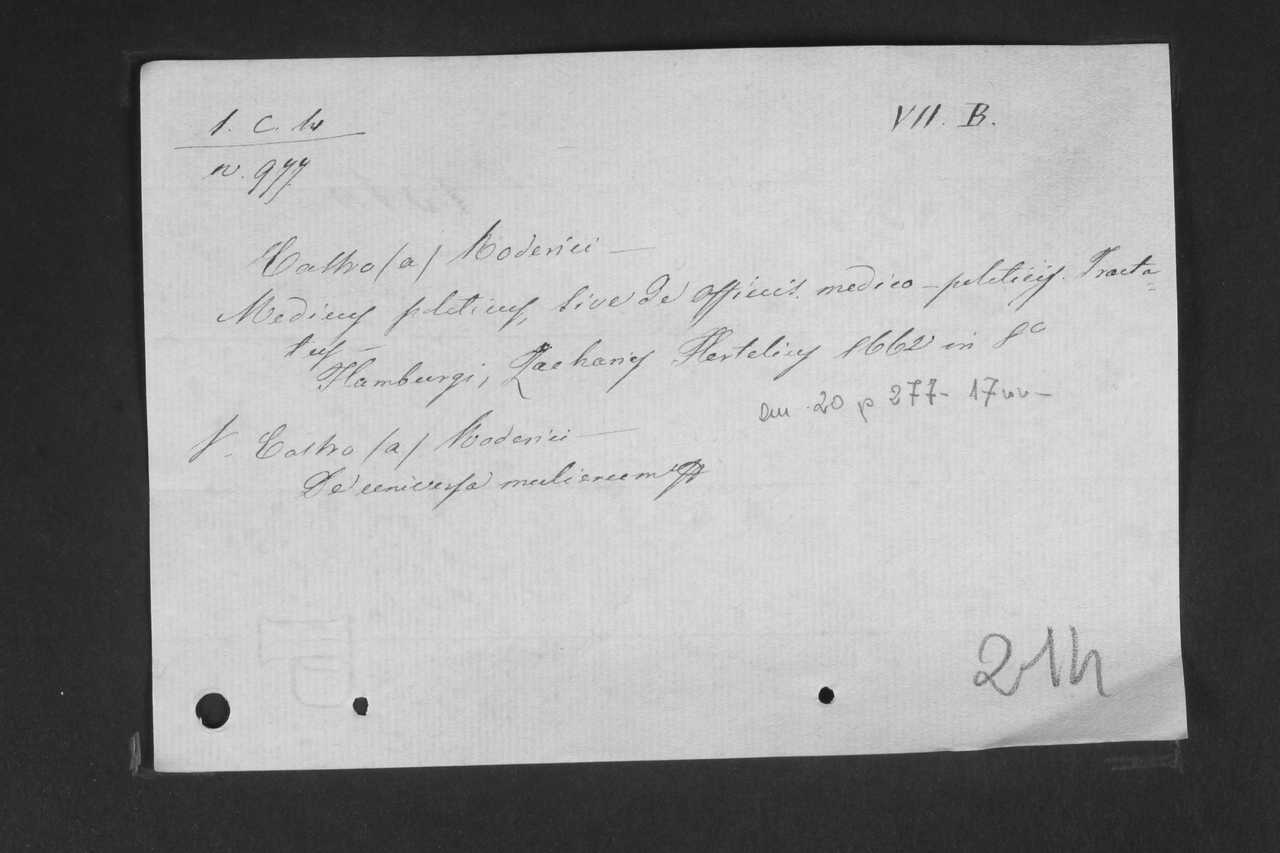 1. C. 14
VII. B.
n. 977
Castro (a) Roderici —
Medicus politicus, sive de officiis medico-politicis. Tracta=
tus —
Hamburgi, Zacharias Hertelius 1662 in 8°
20 p 277- 17
V. Castro (a) Roderici —
De universa mulierum
214